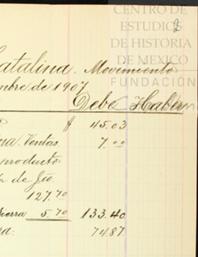 CENTRO DE
ESTUDIOS
DE HISTORIA
DE MEXICO
FUNDACIÓN
Catalina. Movimiento
mbre de 1907
Debe Haber
$ 45.03
Ventas 7.00
producto
127.70
5.70 133.40
74.87